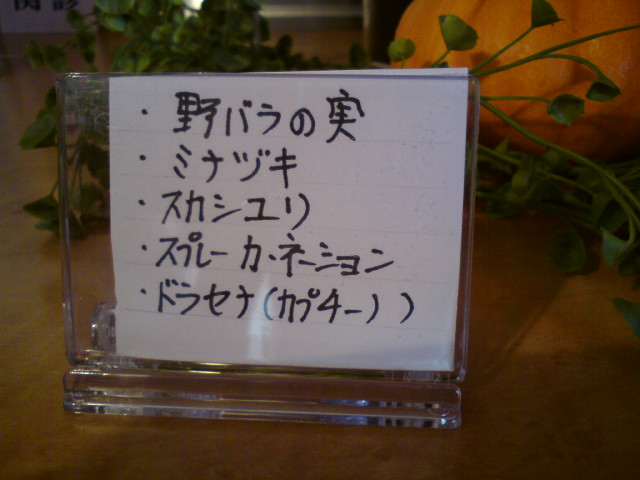 問診
・野バラの実
・ミナヅキ
・スカシユリ
・スプレーカーネーション
・ドラセナ(カプチーノ)